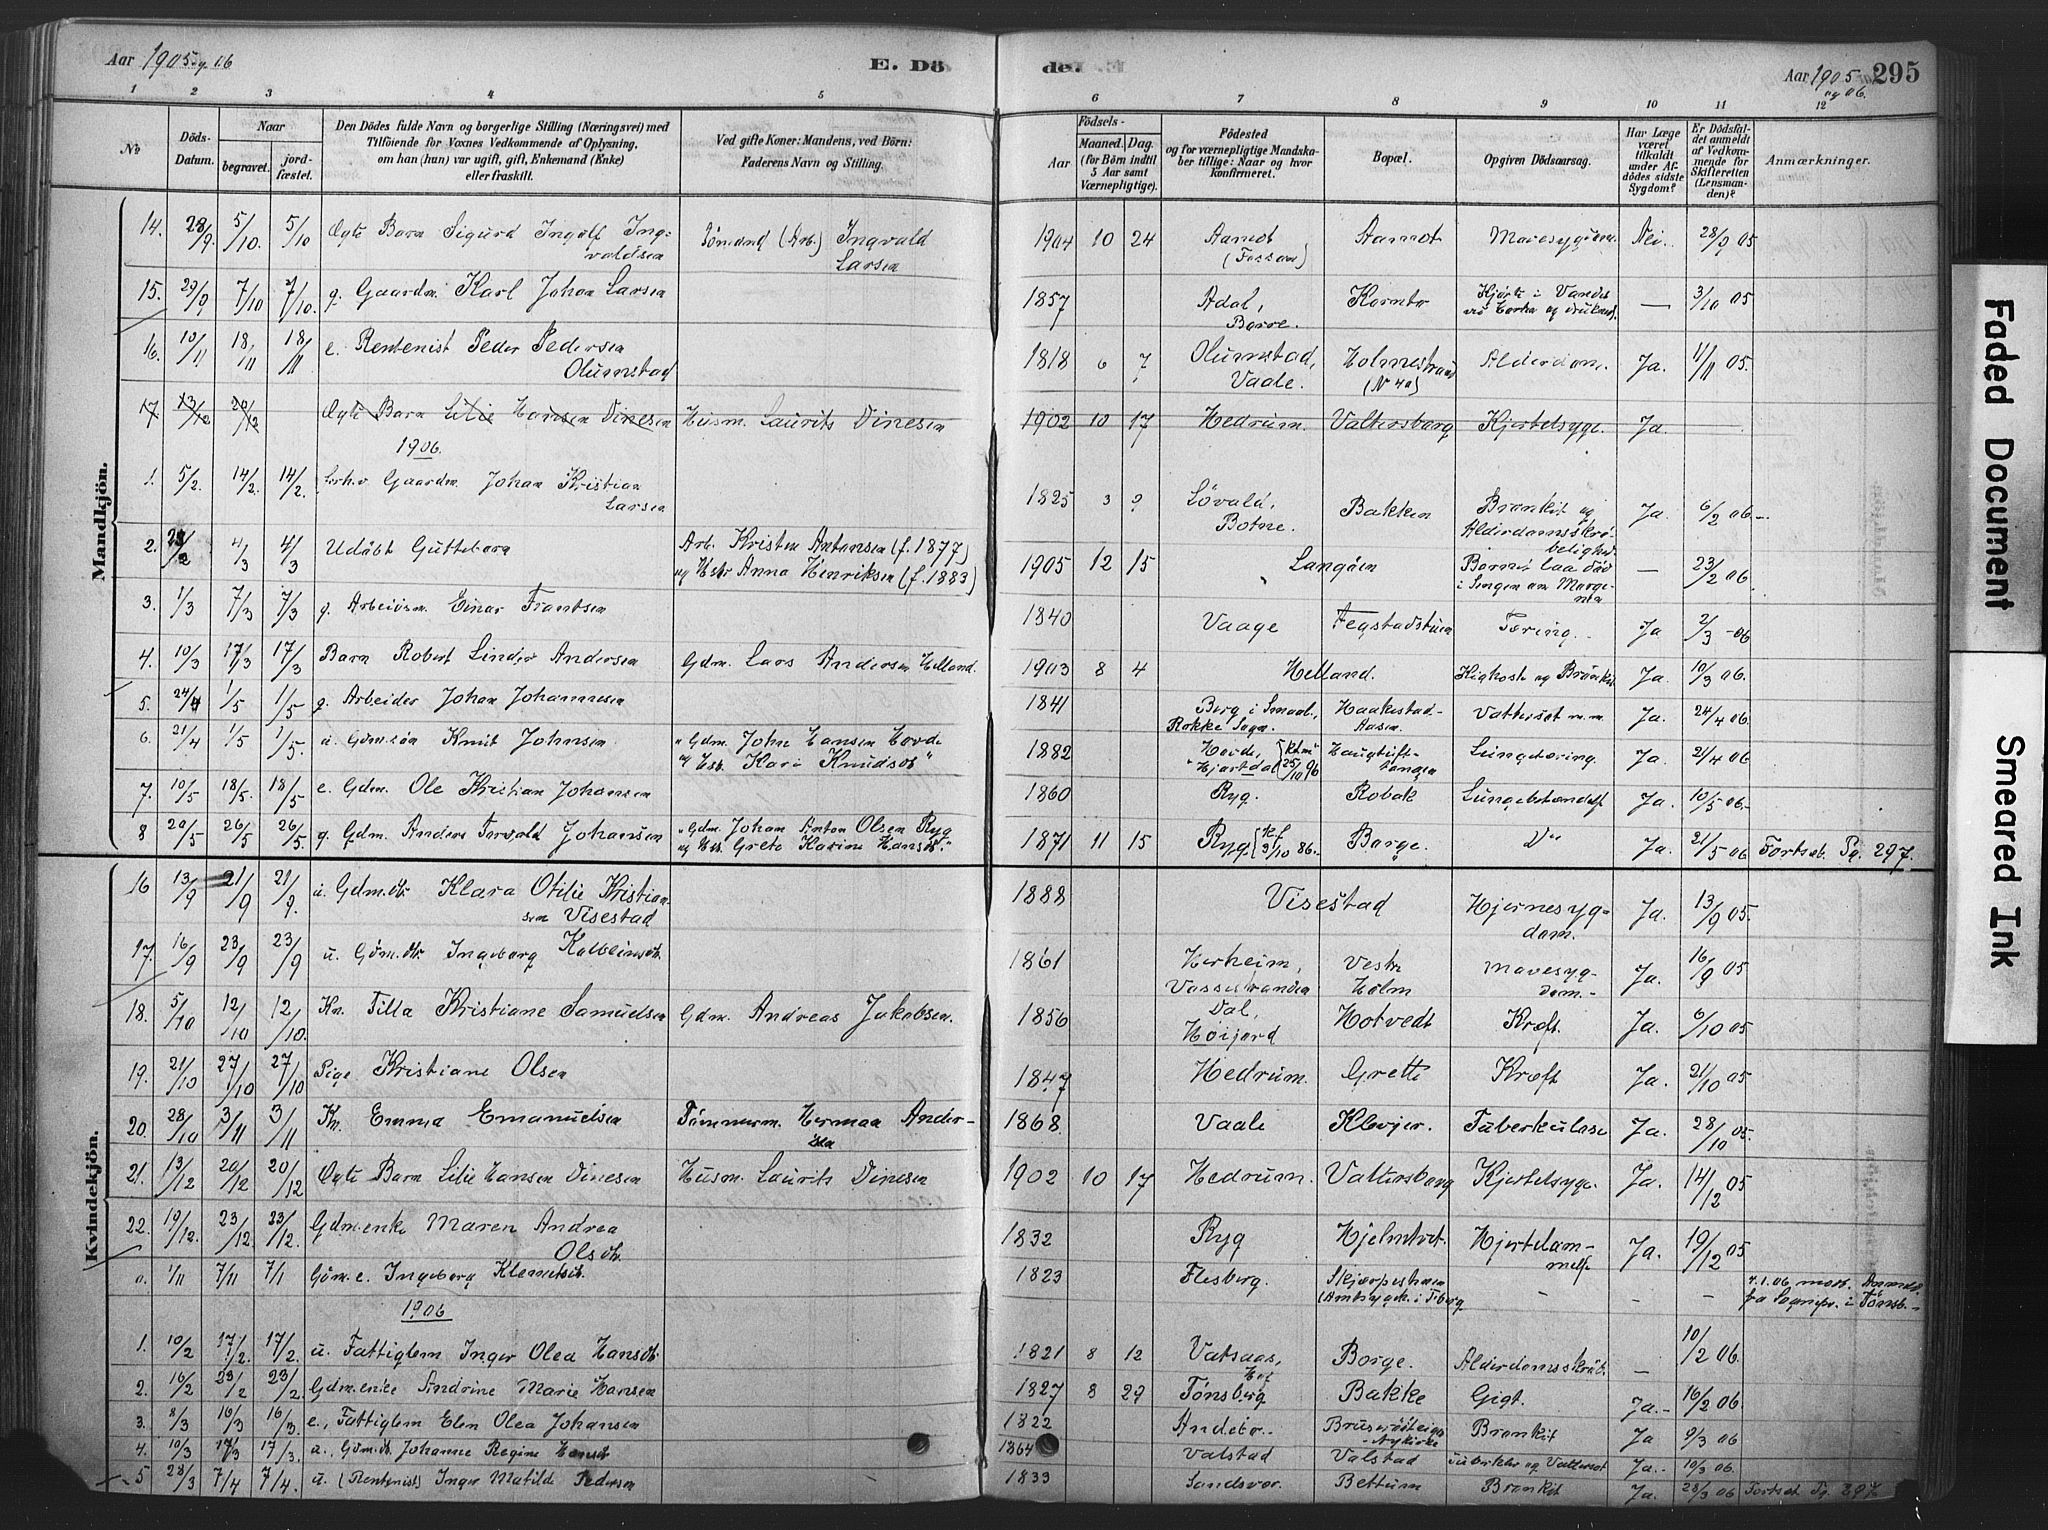 Aar 1905 og 06
E. Dö
de.
Aar 1905 og 06.
295
1 2 3 4 5 6 7 8 9 10 11 12
No
Döds-Datum.
Naar
begravet.
jord-fæstet.
Den Dödes fulde Navn og borgerlige Stilling (Næringsvei) med
Tilföiende for Voxnes Vedkommende af Oplysning,
om han (hun) var ugift, gift, Enkemand (Enke)
eller fraskilt.
Ved gifte Koner: Mandens, ved Börn:
Faderens Navn og Stilling.
Födsels-
Aar
Maaned. Dag.
(for Börn indtil
5 Aar samt
Værnepligtige).
Födested
og for værnepligtige Mandska-
ber tillige: Naar og hvor
konfirmeret.
Bopæl.
Opgiven Dödsaarsag.
Har Læge
været
tilkaldt
under Af-
dödes sidste
Sygdom?
Er Dödsfal-
det anmeldt
af Vedkom-
mende for
Skifteretten
(Lensman-
den)?
Anmærkninger.
Mandkjön.
14. 28/9 5/10 5/10 Ægte Barn Sigurd Ingolf Ing-
valdsen
Sömand (Arb.) Ingvald
Larsen
1904 10 24 Aamot
(Fossan)
Aamot Mavesygdom Nei. 28/9 05
15. 29/9 7/10 7/10 g. Gaardm. Karl Johan Larsen 1857 Adal,
Borre.
Kornbo Kjørte i Vandet
og druknede. — 3/10 05
16. 10/11 18/11 18/11 e. Rentenist Peder Pedersen
Olumstad
1818 6 7 Olumstad,
Vaale.
Holmestrand
Alderdom. Ja. 11/11 05.
17 13/12 20/12 Ægte Barn Lilie Hansen Dinesen Husm. Laurits Dinesen 1902 10 17 Hedrum. Valtersborg Kjertelsyge. Ja.
1906.
1. 5/2. 14/2. 14/2. Gaardm. Johan Kristian
Larsen
1825 3 ? Løvald,
Botne.
Bakken Bronkit og
Alderdomsskrö-
belighed
Ja. 6/2 06.-
2. 23/2 4/3 4/3 Udöbt Guttebarn Arb. Kristen Antonsen (f. 1877)
og Hstr Anna Henriksen (f. 1883)
1905 12 15 Langöen Barnet laa död
i Sengen om Morge-
nen
— 23/2 06.
3. 1/3 7/3 7/3 g. Arbeidsm. Einar Frantsen 1840 Vaage Fegstadstuen Tæring. Ja 2/3 -06
4. 10/3 17/3 17/3 Barn Robert Linder Andersen Gdm. Lars Andersen Helland. 1903 8 4 Helland. Kighoste og Bronkit Ja. 10/3 06.
5. 24/4 1/5 1/5 g. Arbeider Johan Johannesen 1841 Berg i Smaal.,
Rokke Sogn.
Haakestad-
Aasen.
Vattersot m.m. Ja. 24/4 06.
6. 21/4 1/5 1/5. u. Gdm.sön Knut Johnsen "Gdm. John Hansen Hovde
og Hst. Kari Knudsdt"
1882 Hovde,
Hjartdal
25/10 96
Lungetæring. Ja. 21/4 06
7. 10/5 18/5. 18/5 e. Gdm. Ole Kristian Johansen 1860 Ryg. Robak Lungebetændelse Ja. 10/5 06.
8 20/5 26/5 26/5. g. Gdm. Anders Torvald Johansen "Gdm. Johan Anton Olsen Ryg
og Hst. Grete Karine Hansdt."
1871 11 15 Ryg. kf 3/10 86. Borge. D° Ja. 21/5 06 Fortsat. Pg. 297.
Kvindekjön.
16 13/9 21/9 21/9. u. Gdm.dt. Klara Otilie Kristian-
sen Visestad
1888 Visestad Hjernesyg-
dom.
Ja. 13/9 05.
17. 16/9 23/9 23/9 u. Gdm.dt. Ingeborg Kolbeinsdt. 1861 Herheim,
Vasserstranden
Vestre
Holm
Mavesyg-
dom.-
Ja. 16/9 05
18. 5/10 12/10 12/10. Kn. Tilla Kristiane Samuelsen Gdm. Andreas Jakobsen. 1856 Dal,
Höijord
Hotvedt Kræft. Ja. 6/10 05
19. 21/10 27/10 27/10 Pige Kristiane Olsen 1847 Hedrum. Grette Kræft Ja. 21/10 05
20. 28/10 3/11 3/11 Kn. Emma Emanuelsen Tömmerm. Herman Ander-
sen
1868. Vaale Klevjer. Tuberkulose Ja. 28/10 05.
21. 13/12 20/12 20/12 Ægte Barn Lilie Hansen Dinesen Husm. Laurits Dinesen 1902 10 17 Hedrum. Valtersborg Kjertelsyge. Ja. 14/12 05
22. 19/12. 23/12. 23/12. Gdm.enke Maren Andrea
Olsdt.
1832 Ryg Hjelmtvet. Hjertelam-
melse
Ja. 19/12 05
0. 1/11 7/11 7/1 Gdm.e. Ingeborg Klemetsdt. 1823 Flesberg. - - 4.1.06 modt. Anmeld.
fra Sognepr. i Tönsb.
1906
1. 10/2 17/2. 17/2. u. Fattiglem Inger Olea Hansdt. 1821 8 12 Vatsaas,
Hof
Borge. Alderdomsskröb. — 10/2 06.
2. 16/2 23/2 23/2. Gdm.enke Andrine Marie Hansen 1827 8 29 Tönsberg Bakke Gigt. Ja.- 16/2 06.
3. 8/3 16/3 16/3. e. Fattiglem Elen Olea Johansen 1822 Andebu.
Nykirke
Bronkit Ja 9/3 06
4. 10/3 17/3 17/3. u. Gdm.dt. Johanne Regine Hansdt 1864 Valstad Valstad Tuberkler og Vattersot Ja.- 10/3 06.
5 28/3 7/4 7/4. u. (Rentenist) Inger Matilde Pedersen 1833 Sandsvær. Bettum Bronkit Ja. 28/3 06 Fortsat Pg. 297
Faded Document
Smeared Ink